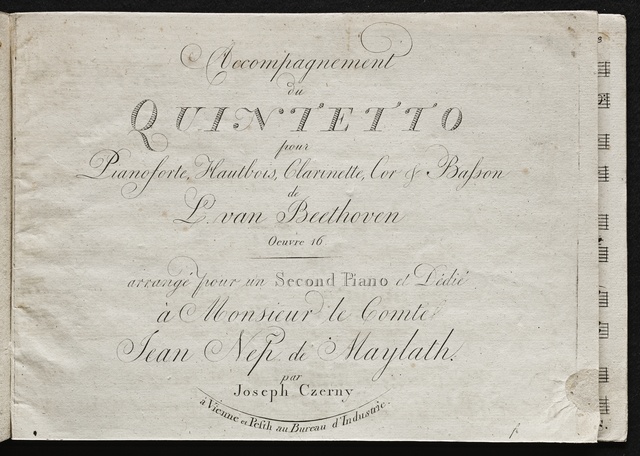 Accompagnement
du
QUINTETTO
pour
Pianoforte, Hautbois, Clarinette, Cor & Basson
de
L. van Beethoven
Oeuvre 16
arrangé pour un Second Piano et Dédié
à Monsieur le Comte
Jean Nep. de Maylath.
par
Joseph Czerny
à Vienne et Pesth au Bureau d'Industrie.